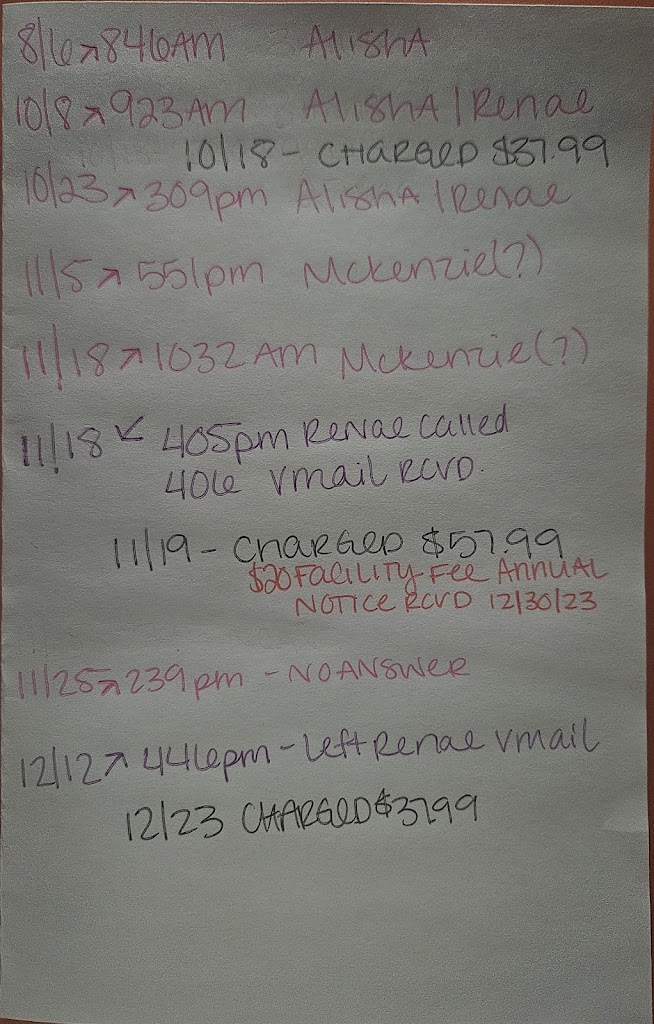 8/6↗846AM Alisha
10/8↗923AM Alisha/Renae
10/18 - CHARGED $37.99
10/23↗309pm Alisha/Renae
11/5↗551pm Mckenzie(?)
11/18↗1032AM Mckenzie(?)
11/18↙ 405pm Renae called
406 Vmail RCVD.
11/19 - CHARGED $57.99
$20 FACILITY FEE ANNUAL
NOTICE RCVD 12/30/23
11/25↗239pm - NO ANSWER
12/12↗ 446pm - Left Renae vmail
12/23 CHARGED $37.99